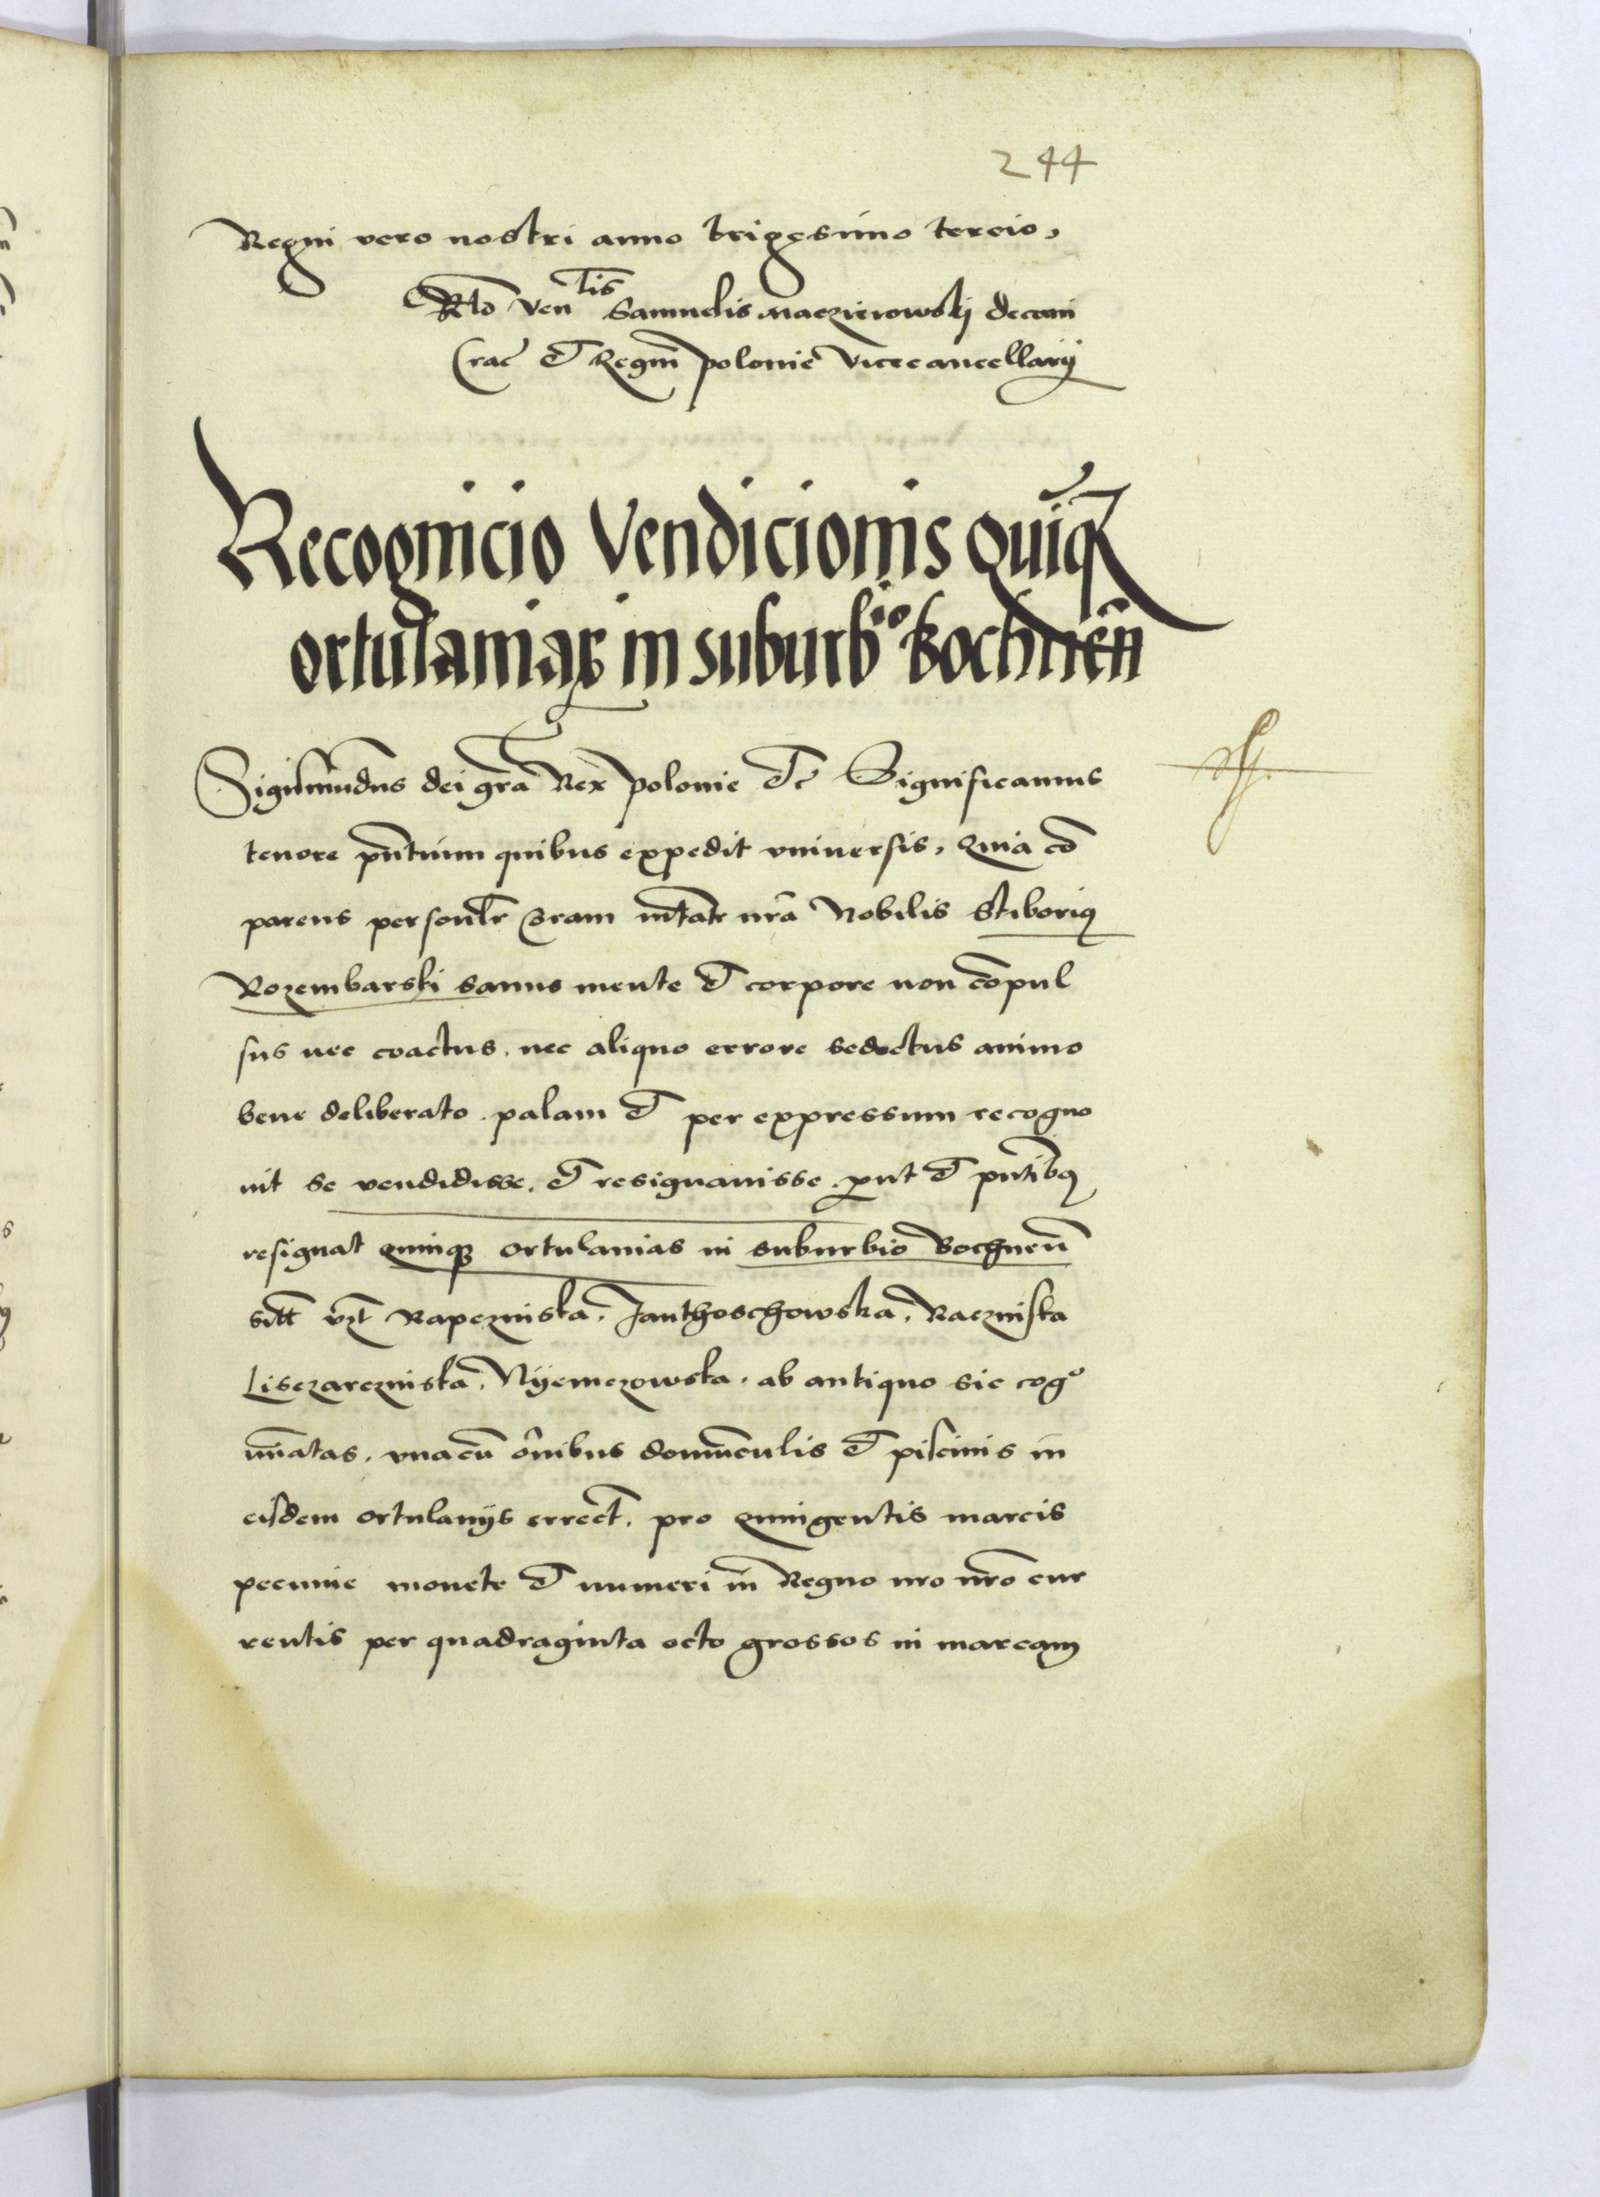 244
Regni vero nostri anno trigesimo tercio,
Rlo Ven lis Samuelis Maczieiowskj decani
Crac et Regni polonie Vicecancellarij
Recognicio Vendicionis quiq
ortulaniar in suburbio Bochnen
Sigismundus dei gra Rex polonie etc Significamus
tenore pntium quibus expedit vniuersis, Quia co
parens personlr coram mtate nra Nobilis Stiborius
Rozembarski sanus mente et corpore non compul
sus nec coactus, nec aliquo errore seductus animo
bene deliberato palam et per expressum recogno
uit se vendidisse, et resignauisse, put et pntibus
resignat quinque ortulanias in suburbio Bochnen
sitt vzt Rapcznska, Janthoschowska, Racznska
Lisczarcznska, Nyemczowska, ab antiquo sic cog
nnatas, vnacu omnibus domunculis et piscinis in
eisdem ortulanijs errect, pro quingentis marcis
pecunie monete et numeri in Regno nro nro cur
rentis per quadraginta octo grossos in marcam